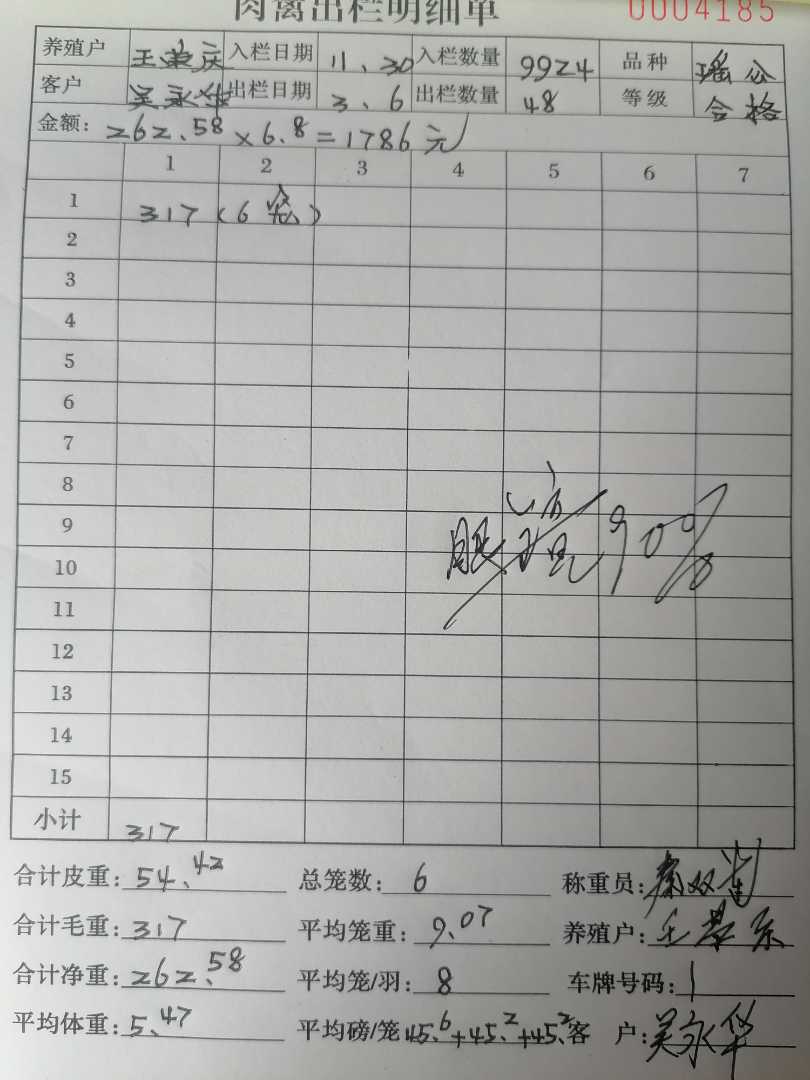 肉禽出栏明细单 0004185
养殖户 王荣庆 入栏日期 11、30 入栏数量 9924 品种 瑶公
客户 吴永华 出栏日期 3、6 出栏数量 48 等级 合格
金额: 262.58×6.8=1786元
1 2 3 4 5 6 7
1 317 (6笼)
2
3
4
5
6
7
8
9
10
11
12
13
14
15
小计 317
90%
合计皮重: 54.42 总笼数: 6 称重员:
合计毛重: 317 平均笼重: 9.07 养殖户: 王
合计净重: 262.58 平均笼/羽: 8 车牌号码: 1
平均体重: 5.47 平均磅/笼 45.6+45.2+45.2 客 户: 吴永华